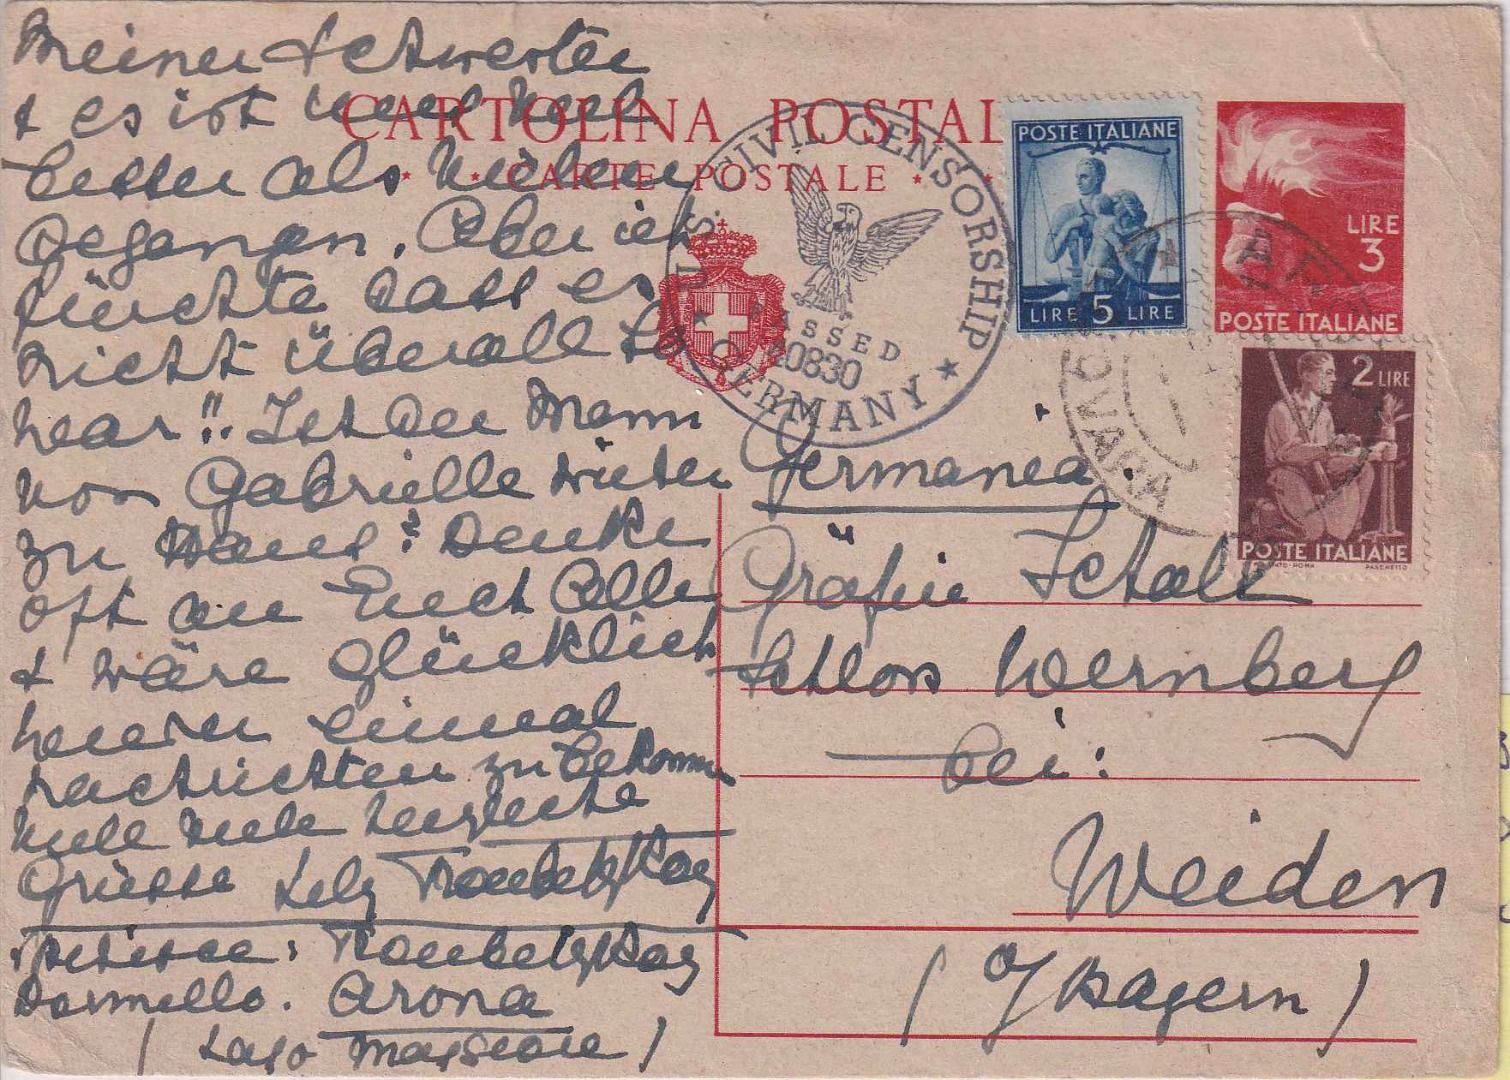 meiner Schwester
+ es ist und noch
besser als vielen
gegangen. Aber ich
fürchte dass es
nicht überall so
war". Ist der Mann
von Gabrielle wieder
zu Haus? Denke
oft an Euch Alle
+ wäre glücklich
einmal
Nachrichten zu bekomm
viele viele herzliche
Grüsse Lily Troubetzkoy
Troubetzkoy
Dormello. Arona
(Lago Maggiore)
CARTOLINA POSTAL
CARTE POSTALE
U.S. CIVIL CENSORSHIP
PASSED
40830
GERMANY
POSTE ITALIANE
LIRE 5 LIRE
LIRE
3
POSTE ITALIANE
2 LIRE
POSTE ITALIANE
NOVARA
Germania.
Gräfin Schall
Schloss Wernberg
bei:
Weiden
(O/Bayern)